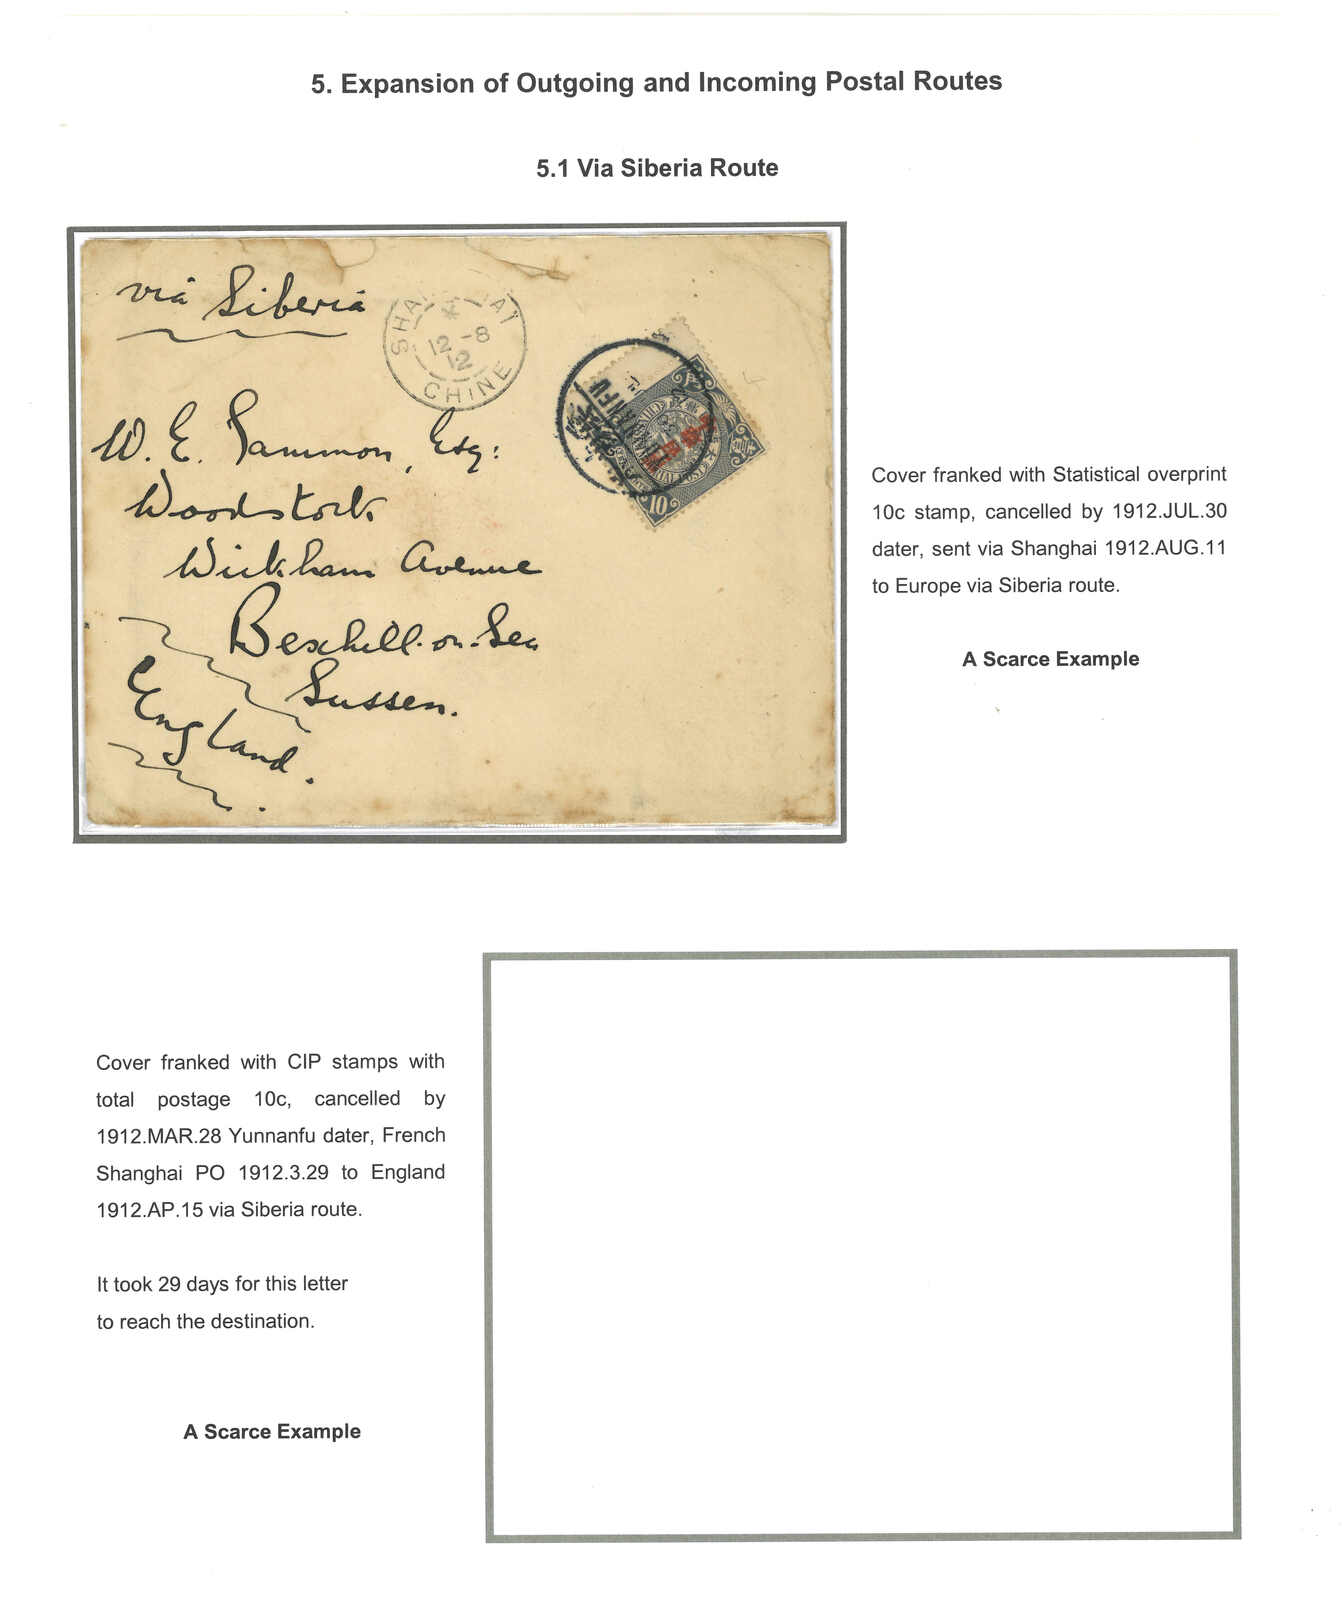 5. Expansion of Outgoing and Incoming Postal Routes
5.1 Via Siberia Route
via Siberia
SHANGHAI
12-8
12
CHINE
W. E. Sammon, Esq:
Woodstock
Wickham Avenue
Bexhill-on-Sea
Sussex.
England.
10
Cover franked with Statistical overprint
10c stamp, cancelled by 1912.JUL.30
dater, sent via Shanghai 1912.AUG.11
to Europe via Siberia route.
A Scarce Example
Cover franked with CIP stamps with
total postage 10c, cancelled by
1912.MAR.28 Yunnanfu dater, French
Shanghai PO 1912.3.29 to England
1912.AP.15 via Siberia route.
It took 29 days for this letter
to reach the destination.
A Scarce Example